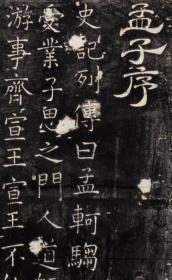 孟子序
史記列傳曰孟軻騶
受業子思之門人道
游事齊宣王宣王不